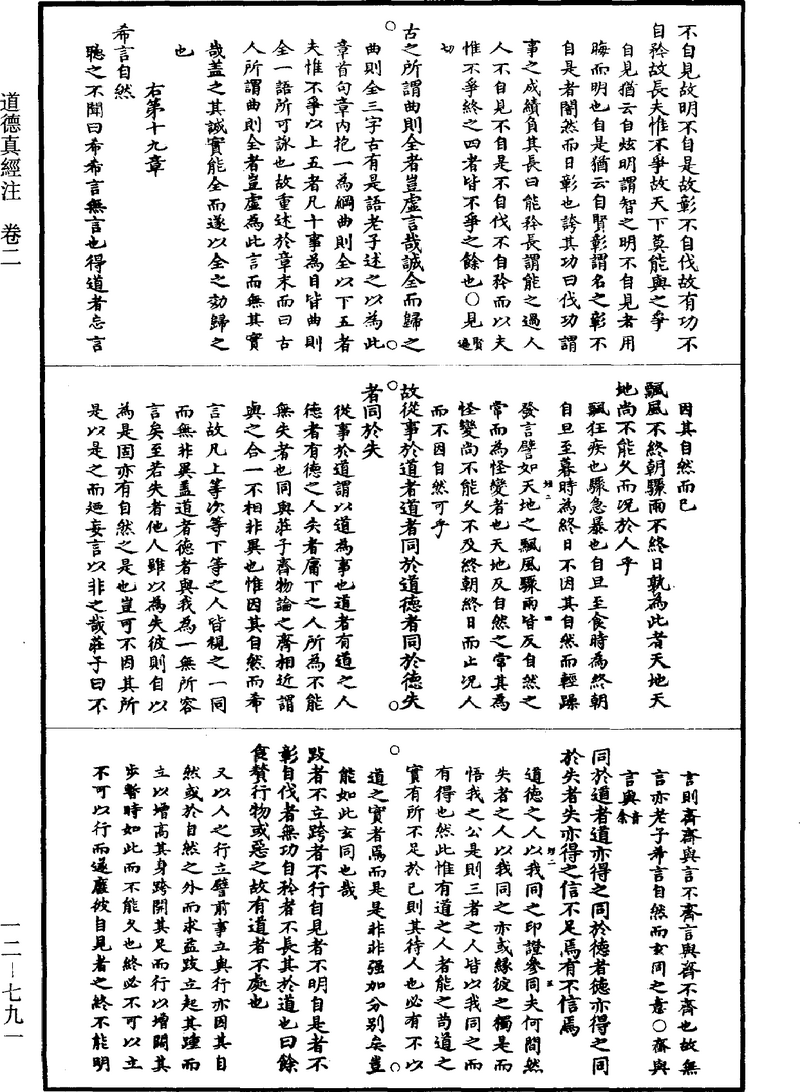 不自見故明不自是故彰不自伐故有功不
自矜故長夫惟不爭故天下莫能與之爭
自見猶云自炫明謂智之明不自見者用
晦而明也自是猶云自賢彰謂名之彰不
自是者闇然而日彰也誇其功曰伐功謂
事之成績負其長曰能矜長謂能之過人
人不自見不自是不自伐不自矜而以夫
惟不爭終之四者皆不爭之餘也○見賢遍
切
○古之所謂曲則全者豈虛言哉誠全而歸之○
曲則全三字古有是語老子述之以為此
章首句章內抱一為綱曲則全以下五者
夫惟不爭以上五者凡十事為目皆曲則
全一語所可詠也故重述於章末而曰古
人所謂曲則全者豈虛為此言而無其實
哉蓋之其誠實能全而遂以全之効歸之
也
右第十九章
希言自然
聽之不聞曰希希言無言也得道者忘言
因其自然而已
飄風不終朝驟雨不終日孰為此者天地天
地尚不能久而況於人乎
飄狂疾也驟急暴也自旦至食時為終朝
自旦至暮時為終日不因其自然而輕躁
發言譬如天地之飄風驟雨皆反自然之
常而為怪變者也天地反自然之常其為
怪變尚不能久不及終朝終日而止況人
而不因自然可乎
○故從事於道者道者同於道德者同於德失○
者同於失
從事於道謂以道為事也道者有道之人
德者有德之人失者庸下之人所為不能
無失者也同與莊子齊物論之齊相近謂
與之合一不相非異也惟因其自然而希
言故凡上等次等下等之人皆視之一同
而無非異蓋道者德者與我為一無所容
言矣至若失者他人雖以為失彼則自以
為是固亦有自然之是也豈可不因其所
是以是之而遽妄言以非之哉莊子曰不
言則齊齊與言不齊言與齊不齊也故無
言亦老子希言自然而玄同之意○齊與
言與音余
同於道者道亦得之同於德者德亦得之同
於失者失亦得之信不足焉有不信焉
道德之人以我同之印證參同夫何間然
失者之人以我同之亦或緣彼之獨是而
悟我之公是則三者之人皆以我同之而
有得也然此惟有道之人者能之苟道之
實有所不足於已則其待人也必有不以
○道之實者焉而是是非非強加分別矣豈○
能如此玄同也哉
跂者不立跨者不行自見者不明自是者不
彰自伐者無功自矜者不長其於道也曰餘
食贅行物或惡之故有道者不處也
又以人之行立譬前事立與行亦因其自
然或於自然之外而求益跂立起其踵而
立以增高其身跨開其足而行以增闊其
步暫時如此而不能久也終必不可以立
不可以行而遂廢彼自見者之終不能明
道德真經注　卷二
一二—七九一